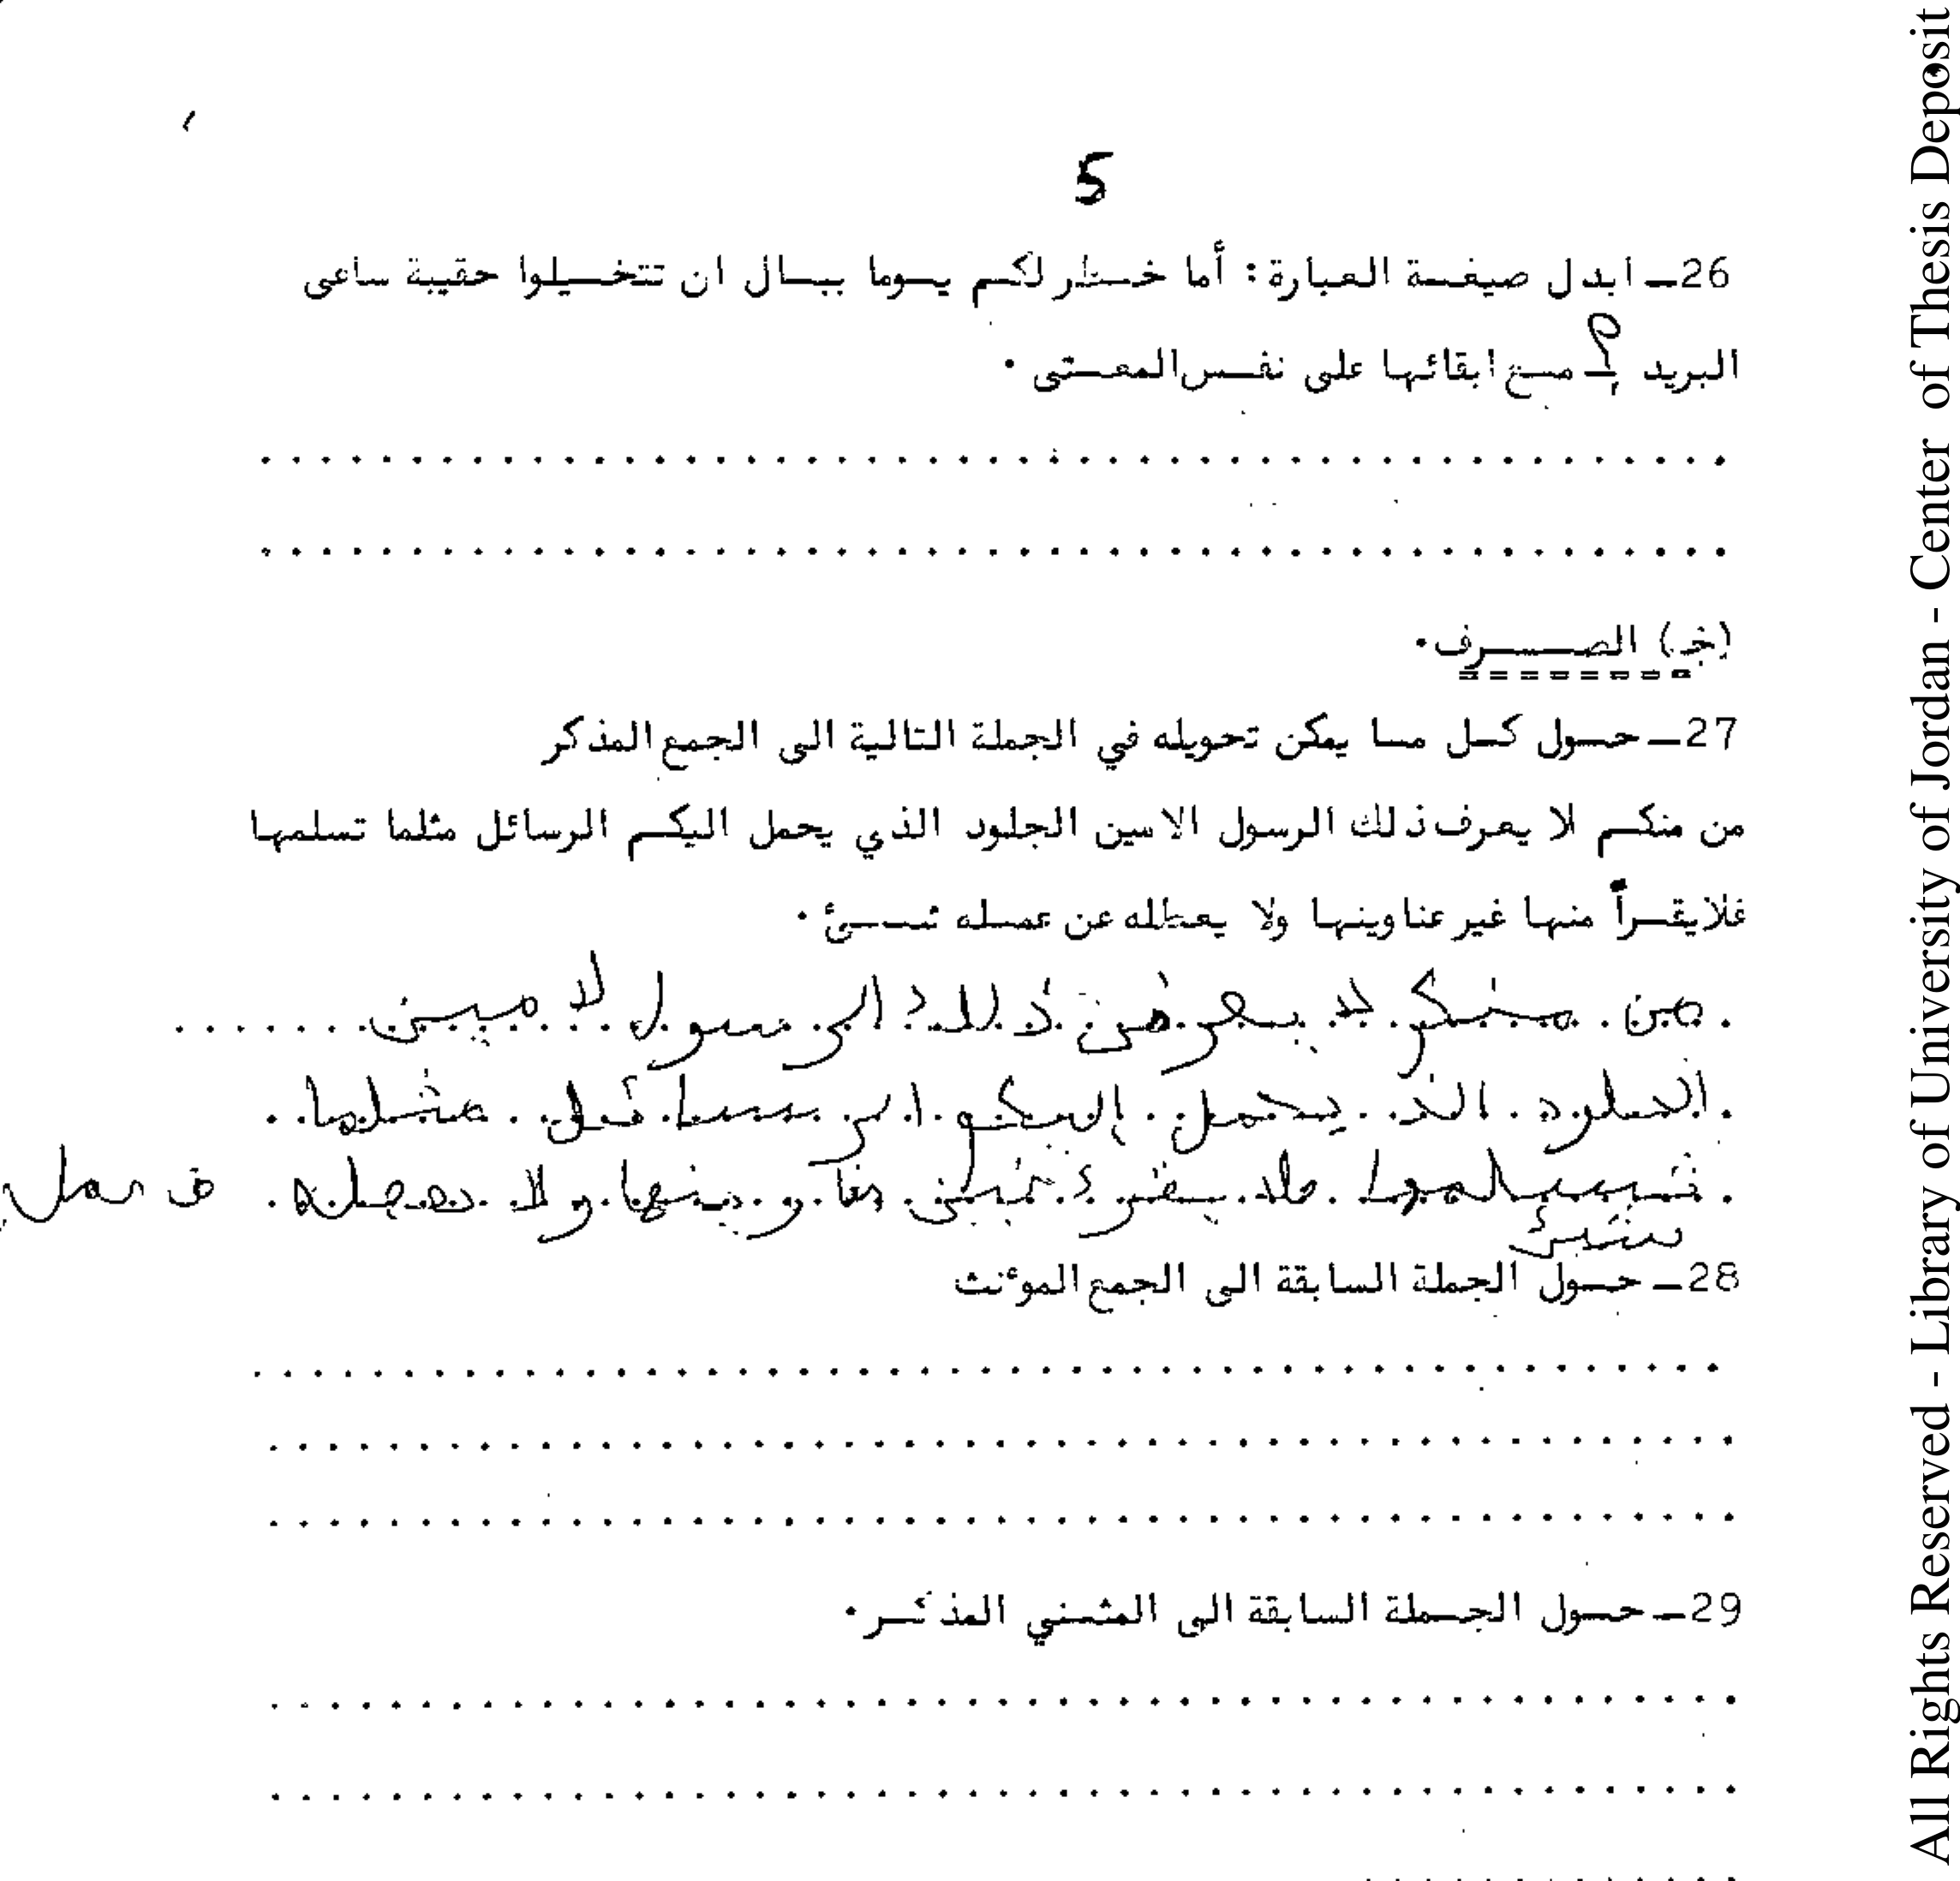 5
26ـ ابدل صيغة العبارة : أما خطر لكم يوما ببال ان تتخيلوا حقيبة ساعى
البريد ؟ مع ابقائها على نفس المعنى .
(ج) الصرف .
27ـ حول كل ما يمكن تحويله في الجملة التالية الى الجمع المذكر
من منكم لا يعرف ذلك الرسول الامين الجلود الذي يحمل اليكم الرسائل مثلما تسلمها
فلا يقرأ منها غير عناوينها ولا يعطله عن عمله شيئ .
من منكم لا يعرفن ذلك الرسول لا مين
الذ يحمل اليكم الرسائل مثلما
تسلمها فلا يقرء ولا
شيئ
28ـ حول الجملة السابقة الى الجمع المؤنث
29ـ حول الجملة السابقة الى المثني المذكر .
All Rights Reserved - Library of University of Jordan - Center of Thesis Deposit